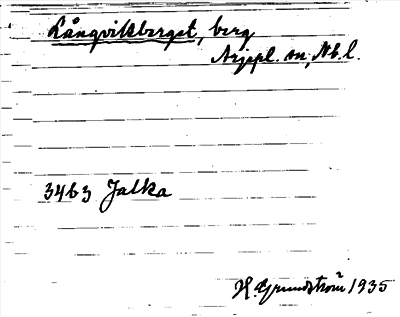 Långviksberget, berg
Arjepl. sn, Nb.l.
3463 Jalka
H. Grundström 1935